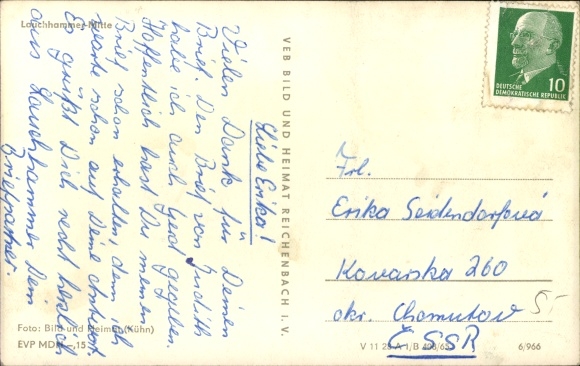 Lauchhammer-Mitte
Liebe Erika!
Vielen Dank für Deinen
Brief. Den Brief von Judith
habe ich auch Gerd gegeben.
Hoffentlich hast Du meinen
Brief schon erhalten, denn ich
warte schon auf Deine Antwort.
Es grüßt Dich recht herzlich
aus Lauchhammer Dein
Briefpartner.
Foto: Bild und Heimat (Kühn)
EVP MDN -,15
VEB BILD UND HEIMAT REICHENBACH I. V.
DEUTSCHE
DEMOKRATISCHE REPUBLIK
10
Frl.
Erika Seidendorfová
Kovarska 260
okr. Chomutov
ČSSR
5,-
V 11 28 A 1/B
6/966